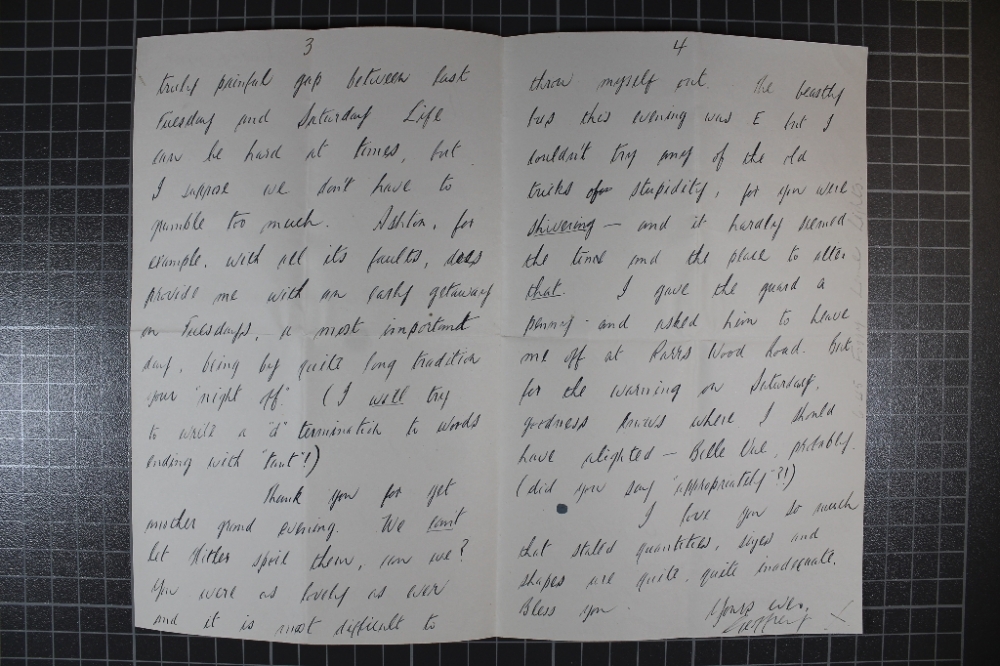 3
truly painful gap between last
Tuesday and Saturday Life
can be hard at times, but
I suppose we don't have to
grumble too much. Ashton, for
example, with all its faults, does
provide me with an early getaway
on Tuesdays, a most important
day, being by quite long tradition
your "night off." (I will try
to write a "t" termination to words
ending with "tant"!)
Thank you for yet
another grand evening. We can't
let Hitler spoil them, can we?
You were as lovely as ever
and it is most difficult to
4
throw myself out. The beastly
bus this evening was E but I
couldn't try any of the old
tricks of stupidity, for you were
shivering — and it hardly seemed
the time and the place to alter
that. I gave the guard a
penny and asked him to heave
me off at Parrs Wood Road. But
for the warning on Saturday,
goodness knows where I should
have alighted — Belle Vue, probably.
(did you say "appropriately"?!)
I love you so much
that stated quantities, sizes and
shapes are quite, quite inadequate.
Bless you.
Yours ever,
Geoffrey X